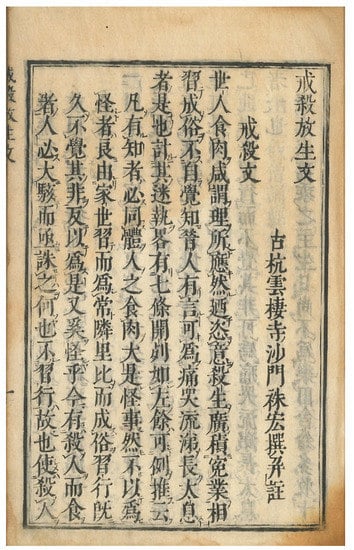 戒殺放生文
古杭雲棲寺沙門袾宏撰并註
戒殺文
世人食肉咸謂理所應然廼恣意殺生廣積冤業相
習成俗不自覺知昔人有言可為痛哭流涕長太息
者是也計其迷執畧有七條開列如左餘可例推云
凡有知者必同體人之食肉大是怪事然不以為
怪者良由家世習而為常隣里比而成俗習行既
久不覺其非反以為是又奚怪乎今有殺人而食
者人必大駭而亟誅之何也不習行故也使殺人
戒殺放生文
一